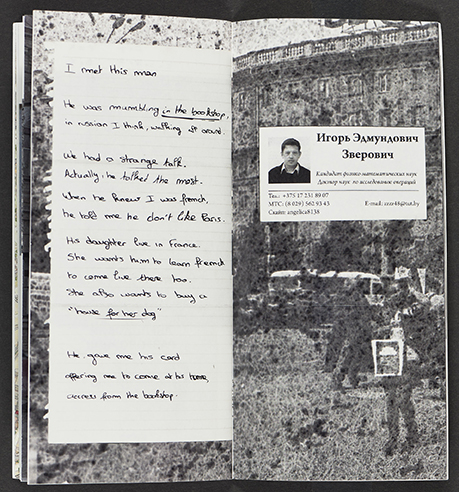 I met this man
He was mumbling in the bookshop,
in russian I think, walking it around.
We had a strange talk.
Actually, he talked the most.
When he knew I was french,
he told me he don't like Paris.
His daughter live in France.
She wants him to learn french
to come live there too.
She also wants to buy a
"house for her dog"
He gave me his card
offering me to come at his home,
across from the bookshop.
Игорь Эдмундович
Зверович
Кандидат физико-математических наук
Доктор наук по исследованию операций
Тел.: +375 17 231 89 07
МТС: (8 029) 562 93 43
E-mail: zzzz48@tut.by
Скайп: angelica8138